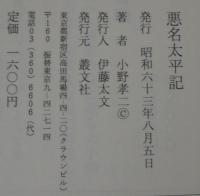 悪名太平記
発行 昭和六十三年八月五日
著者 小野孝二©
発行人 伊藤太文
発行元 叢文社
東京都新宿区高田馬場四-四-二〇(クラウンビル)
〒160 振替東京九-四二七一四
電話03(360)6606(代)
定価 一六〇〇円